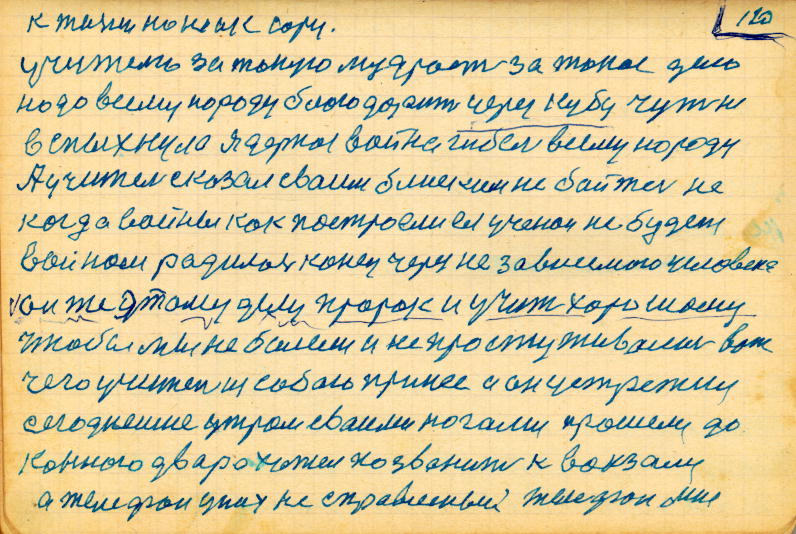 120
к жизни но не ик сори.
учитель за такую мудрост за такое дело
надо всему народу благодарит через кубу чуть не
вспыхнула ядерная война гибел всему народу
А учител сказал своим близким не байтес не
когда войны как построелися ученои не будет
войном радилося конец через не зависемого человека
он же этому делу пророк и учит хорошему
чтобы мы не болели и не простуживалис вот
чего учител и собою принес а он устретил
сегоднешне утром своими ногами прошели до
конного двара хотел позванит к вокзалу
а телефон у них не справленый телефон